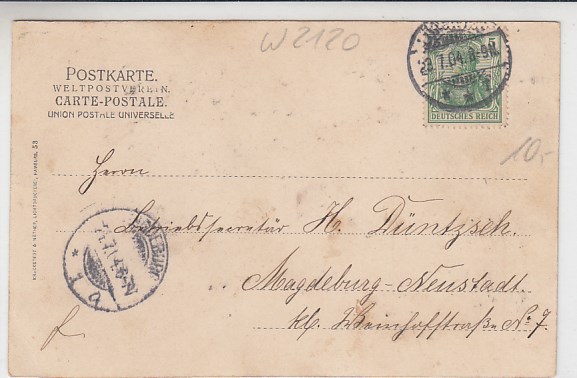 W 2120
POSTKARTE.
WELTPOSTVEREIN.
CARTE-POSTALE.
UNION POSTALE UNIVERSELLE
5
DEUTSCHES REICH
10.-
Herrn
Betriebssecretär H. Düntzsch.
Magdeburg-Neustadt.
kl. Weinhofstraße No 7.